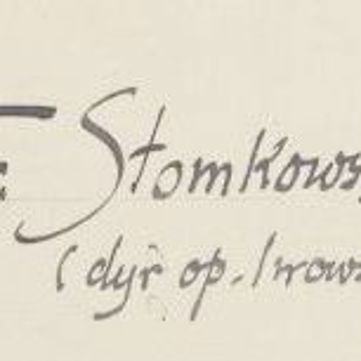 Słomkows
(dyr op. lwows